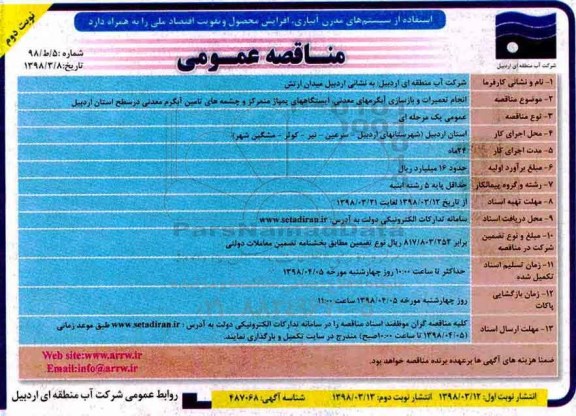 استفاده از سیستم‌های مدرن آبیاری، افزایش محصول وتقویت اقتصاد ملی را به همراه دارد
نوبت دوم
مناقصه عمومی
شماره :۵/ط/۹۸
تاریخ:۱۳۹۸/۳/۸
شرکت آب منطقه ای اردبیل
۱- نام و نشانی کارفرما
شرکت آب منطقه ای اردبیل: به نشانی اردبیل میدان ارتش
۲- موضوع مناقصه
انجام تعمیرات و بازسازی آبگرمهای معدنی، ایستگاههای پمپاژ متمرکز و چشمه های تامین آبگرم معدنی درسطح استان اردبیل
۳- نوع مناقصه
عمومی یک مرحله ای
۴- محل اجرای کار
استان اردبیل (شهرستانهای اردبیل - سرعین - نیر - کوثر - مشگین شهر)
۵- مدت اجرای کار
۲۴ماه
۶- مبلغ برآورد اولیه
حدود ۱۶ میلیارد ریال
۷- رشته و گروه پیمانکار
حداقل پایه ۵ رشته ابنیه
۸- مهلت تهیه اسناد
از تاریخ ۱۳۹۸/۰۳/۱۲ لغایت ۱۳۹۸/۰۳/۲۱
۹- محل دریافت اسناد
سامانه تدارکات الکترونیکی دولت به آدرس: www.setadiran.ir
ParsNamadData
۱۰- مبلغ و نوع تضمین
شرکت در مناقصه
برابر ۸۱۷/۸۰۳/۲۵۲ ریال نوع تضمین مطابق بخشنامه تضمین معاملات دولتی
۱۱- زمان تسلیم اسناد
تکمیل شده
حداکثر تا ساعت ۱۰:۰۰ روز چهارشنبه مورخه ۱۳۹۸/۰۴/۰۵
۱۲- زمان بازگشایی
پاکات
روز چهارشنبه مورخه ۱۳۹۸/۰۴/۰۵ ساعت ۱۱:۰۰
۱۳- مهلت ارسال اسناد
کلیه مناقصه گران موظفند اسناد مناقصه را در سامانه تدارکات الکترونیکی دولت به آدرس : www.setadiran.ir طبق موعد زمانی
(۱۳۹۸/۰۴/۰۵ تا ساعت ۱۰:۰۰صبح) مندرج در سایت تکمیل و بارگذاری نمایند.
ضمنا هزینه های آگهی ها برعهده برنده مناقصه خواهد بود.
Web site:www.arrw.ir
Email:info@arrw.ir
انتشار نوبت اول: ۱۳۹۸/۰۳/۱۲ انتشار نوبت دوم: ۱۳۹۸/۰۳/۱۳
شناسه آگهی: ۴۸۷۰۶۸
روابط عمومی شرکت آب منطقه ای اردبیل